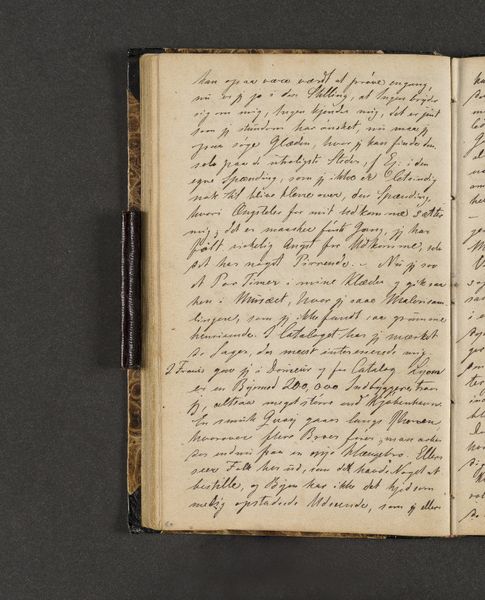 kan ogsaa være værdt at prøve engang,
nu er jeg jo i den Stilling, at Ingen bryder
sig om mig, Ingen kjender mig, det er just
som jeg stundom har ønsket, nu maa jeg
ogsaa søge Glæden, hvor jeg kan finde den
selv paa de uheldigste Steder, f. Ex: i den
egne Spænding, som jeg ikke er
nok til at blive klog over, den Spænding,
hvori Angsten for mit Udkomme sætter
mig; det er maaskee første Gang, jeg har
følt virkelig Angst for Udkommet, selv
det har noget Pirrende. – Nu jeg sov
et Par Timer i mine Klæder og gik saa
hen i Musæet, hvor jeg saae Malerisam
lingen, som jeg ikke fandt saa grumme
henrivende. I Cataloget har jeg mærket
de Sager, der meest interesserede mig.
2 Francs gav jeg i Douceur og for Catalog. Lyon
er en Bymed 200,000 Indbyggere, troer
jeg, altsaa meget større end Kjøbenhavn.
En smuk Quai gaaer langs Rhonen,
hvorover flere Broer fører,
endnu paa en nye Hængebro. Ellers
seer Folk her ud, som de havde Noget at
bestille, og Byen har ikke det
opstadsede Udseende, som jeg ellers